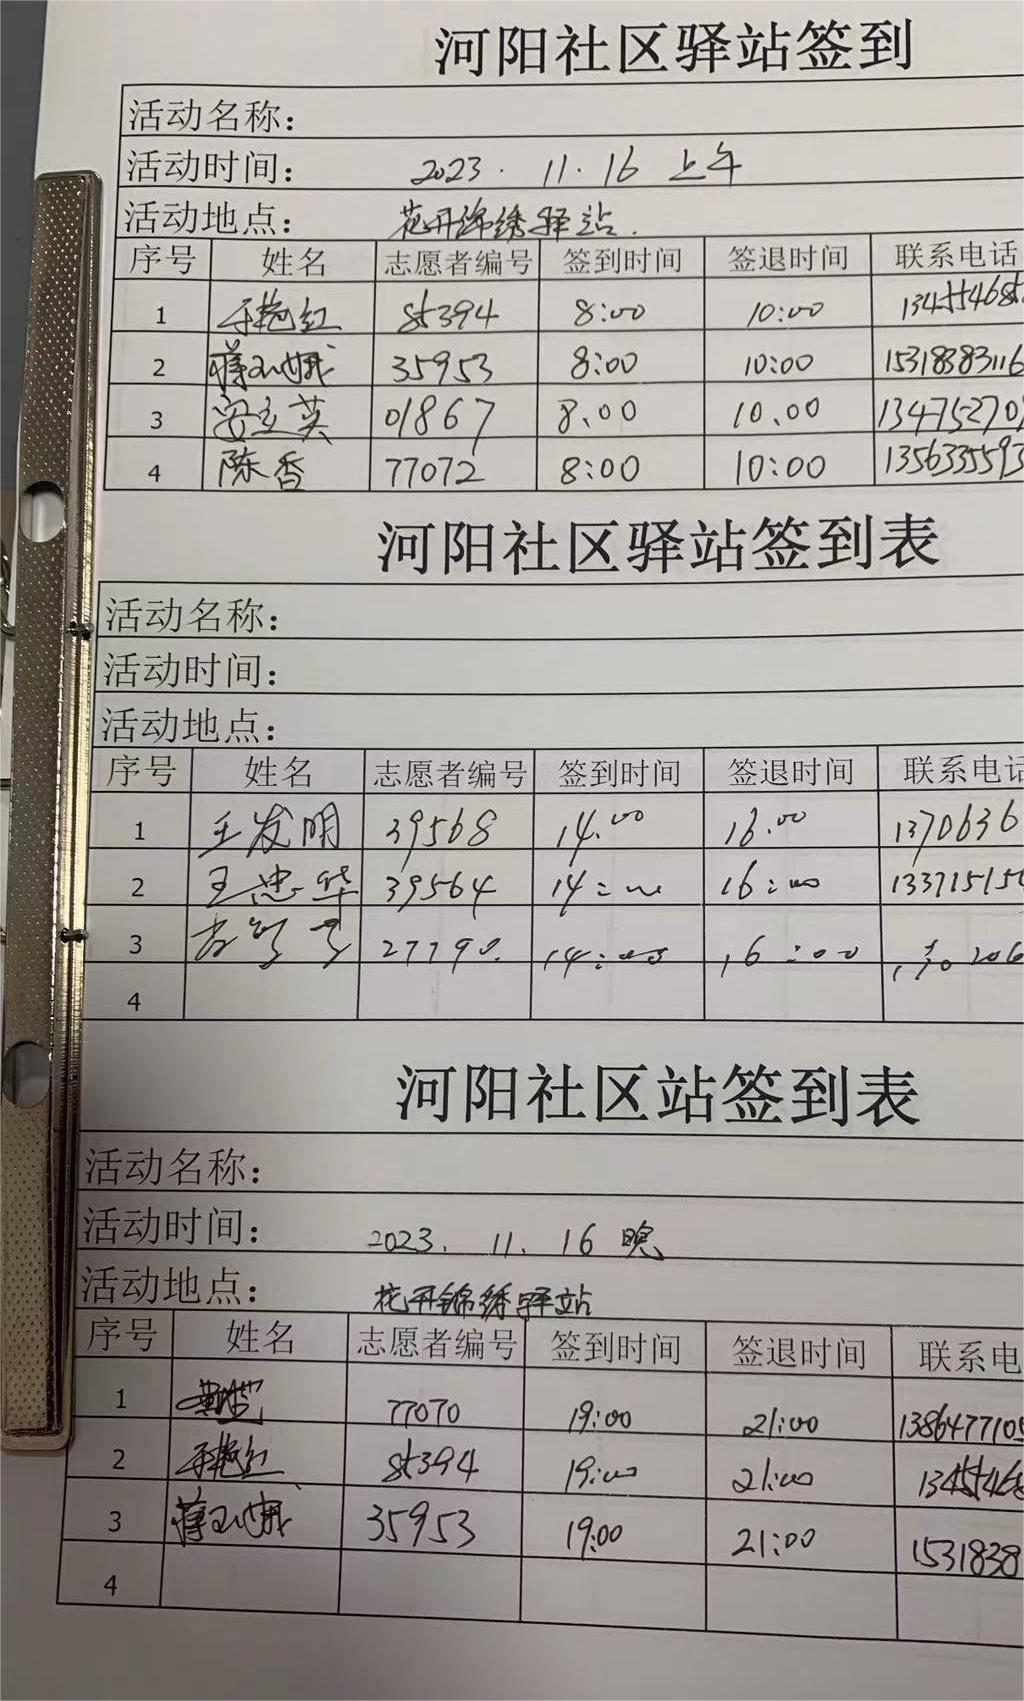 河阳社区驿站签到
活动名称：
活动时间： 2023.11.16 上午
活动地点： 花开锦绣驿站.
序号 姓名 志愿者编号 签到时间 签退时间 联系电话
1 于艳红 85394 8:00 10:00 134554685
2 蒋 娥 35953 8:00 10:00 15318383116
3 安立英 01867 8.00 10.00 134752707
4 陈香 77072 8:00 10:00 1356335593
河阳社区驿站签到表
活动名称：
活动时间：
活动地点：
序号 姓名 志愿者编号 签到时间 签退时间 联系电话
1 王发明 39568 14.00 16.00 1370636
2 王忠华 39564 14:00 16:00 133715150
3 27790. 14:00 16:00
4
河阳社区站签到表
活动名称：
活动时间： 2023.11.16 晚
活动地点： 花开锦绣驿站
序号 姓名 志愿者编号 签到时间 签退时间 联系电
1 77070 19:00 21:00 1386477105
2 于艳红 85394 19:00 21:00 13455468
3 蒋 娥 35953 19:00 21:00 1531838
4